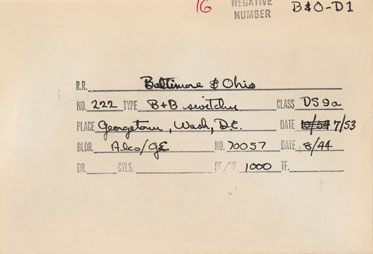 16 NEGATIVE NUMBER B&O-D1
R.R. Baltimore & Ohio
NO. 222 TYPE B+B switcher CLASS DS9a
PLACE Georgetown, Wash, D.C. DATE 10/54 7/53
BLDR. Alco/GE NO. 70057 DATE 8/44
DR. CYLS. 1000 TF.